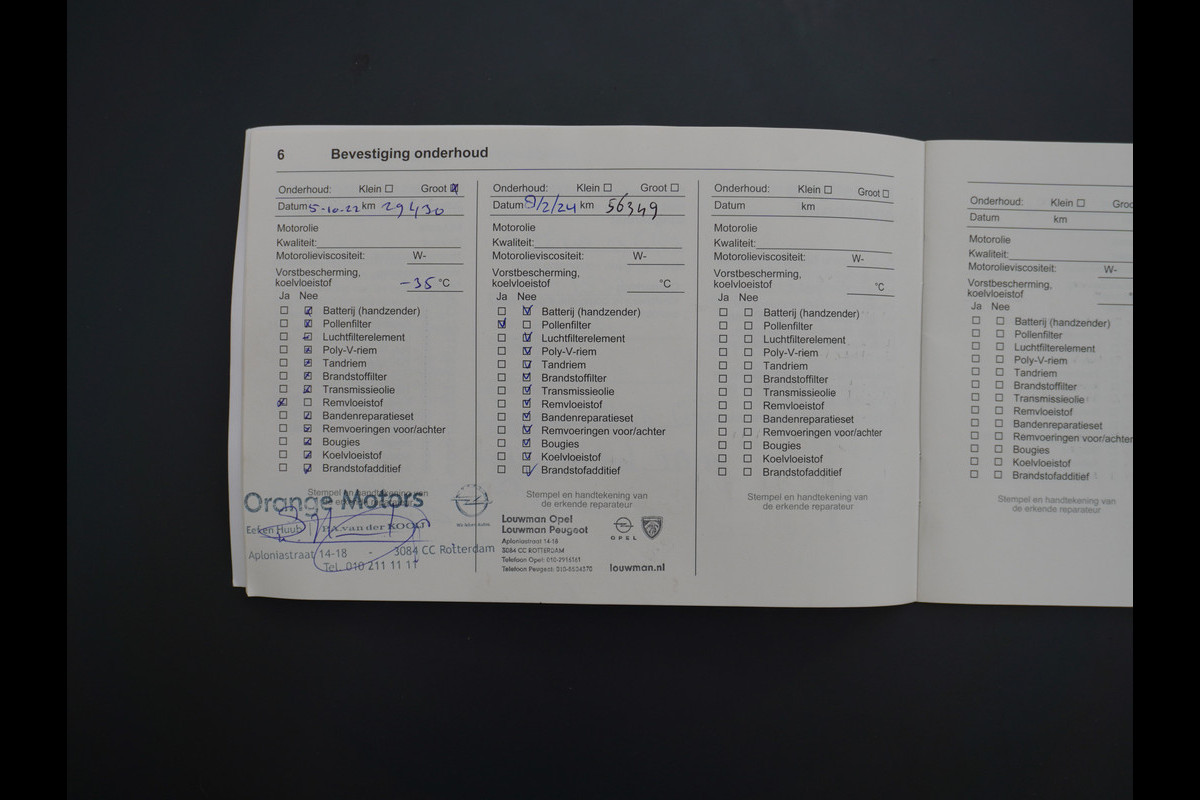 6 Bevestiging onderhoud
Onderhoud: Klein ☐ Groot ☒
Datum 5-10-22 km 29430
Motorolie
Kwaliteit:
Motorolieviscositeit: W-
Vorstbescherming,
koelvloeistof -35 °C
Ja Nee
☐ ☑ Batterij (handzender)
☐ ☑ Pollenfilter
☐ ☑ Luchtfilterelement
☐ ☑ Poly-V-riem
☐ ☑ Tandriem
☐ ☑ Brandstoffilter
☐ ☑ Transmissieolie
☑ ☐ Remvloeistof
☐ ☑ Bandenreparatieset
☐ ☑ Remvoeringen voor/achter
☐ ☑ Bougies
☐ ☑ Koelvloeistof
☐ ☑ Brandstofadditief
Stempel en handtekening van
Orange Motors
Eeken Huub | P.A. van der KOOIJ
Aploniastraat 14-18 - 3084 CC Rotterdam
Tel. 010 211 11 11
Onderhoud: Klein ☐ Groot ☐
Datum 9/2/24 km 56349
Motorolie
Kwaliteit:
Motorolieviscositeit: W-
Vorstbescherming,
koelvloeistof °C
Ja Nee
☐ ☑ Batterij (handzender)
☑ ☐ Pollenfilter
☐ ☑ Luchtfilterelement
☐ ☑ Poly-V-riem
☐ ☑ Tandriem
☐ ☑ Brandstoffilter
☐ ☑ Transmissieolie
☐ ☑ Remvloeistof
☐ ☑ Bandenreparatieset
☐ ☑ Remvoeringen voor/achter
☐ ☑ Bougies
☐ ☑ Koelvloeistof
☐ ☑ Brandstofadditief
Stempel en handtekening van
de erkende reparateur
Louwman Opel
Louwman Peugeot
Aploniastraat 14-18
3084 CC ROTTERDAM
Telefoon Opel: 010-2916161
Telefoon Peugeot:
OPEL
louwman.nl
Onderhoud: Klein ☐ Groot ☐
Datum km
Motorolie
Kwaliteit:
Motorolieviscositeit: W-
Vorstbescherming,
koelvloeistof °C
Ja Nee
☐ ☐ Batterij (handzender)
☐ ☐ Pollenfilter
☐ ☐ Luchtfilterelement
☐ ☐ Poly-V-riem
☐ ☐ Tandriem
☐ ☐ Brandstoffilter
☐ ☐ Transmissieolie
☐ ☐ Remvloeistof
☐ ☐ Bandenreparatieset
☐ ☐ Remvoeringen voor/achter
☐ ☐ Bougies
☐ ☐ Koelvloeistof
☐ ☐ Brandstofadditief
Stempel en handtekening van
de erkende reparateur
Onderhoud: Klein ☐ Groo
Datum km
Motorolie
Kwaliteit:
Motorolieviscositeit: W-
Vorstbescherming,
koelvloeistof
Ja Nee
☐ ☐ Batterij (handzender)
☐ ☐ Pollenfilter
☐ ☐ Luchtfilterelement
☐ ☐ Poly-V-riem
☐ ☐ Tandriem
☐ ☐ Brandstoffilter
☐ ☐ Transmissieolie
☐ ☐ Remvloeistof
☐ ☐ Bandenreparatieset
☐ ☐ Remvoeringen voor/achter
☐ ☐ Bougies
☐ ☐ Koelvloeistof
☐ ☐ Brandstofadditief
Stempel en handtekening van
de erkende reparateur